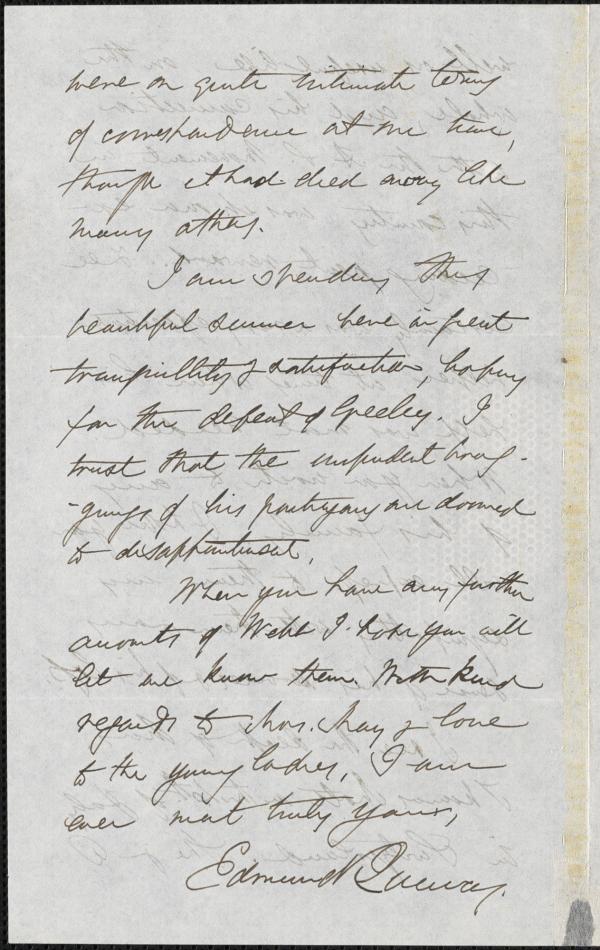 were on quite intimate terms
of correspondence at one time,
though it had died away like
many others.
I am spending this
beautiful summer here in great
tranquillity & satisfaction, hoping
for the defeat of Greeley. I
trust that the impudent brag-
-gings of his partizans are doomed
to disappointment.
When you have any further
accounts of Webb I hope you will
let me know them. With kind
regards to Mrs. May & love
to the young ladies, I am
ever most truly yours,
Edmund Quincy.